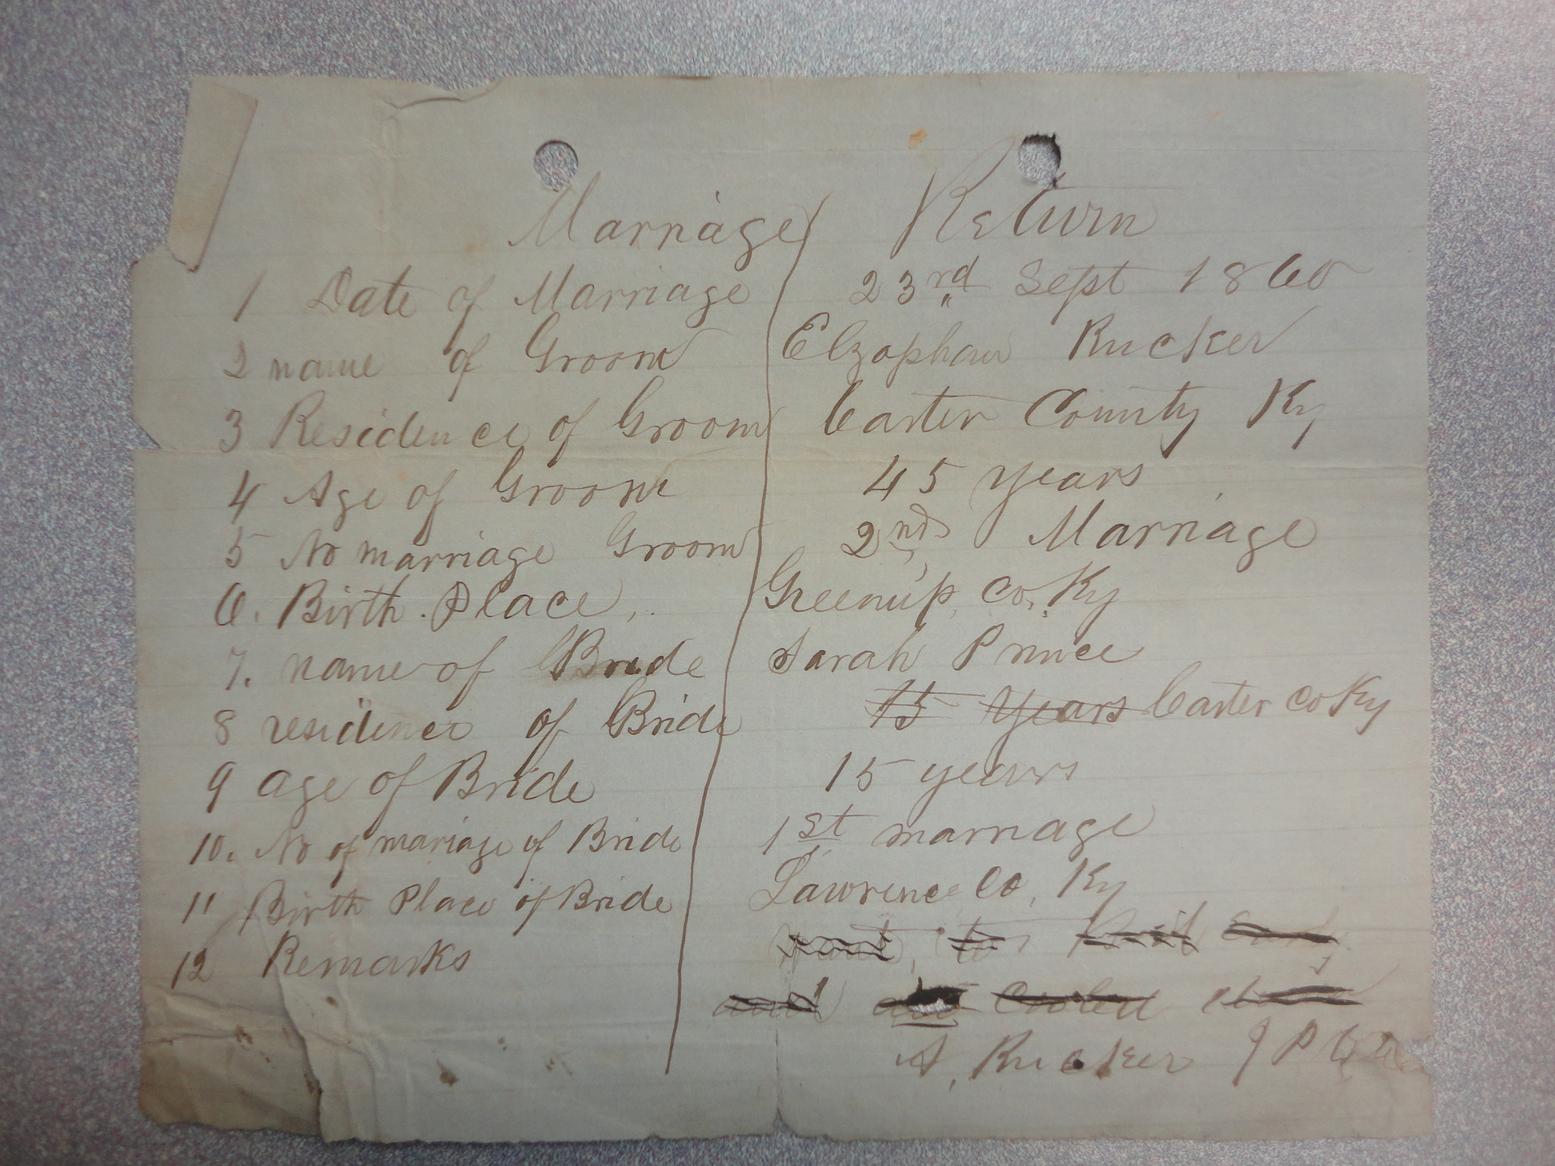 Marriage Return
1 Date of Marriage 23rd Sept 1860
2 name of Groom Elzaphan Rucker
3 Residence of Groom Carter County Ky
4 Age of Groom 45 years
5 No marriage Groom 2nd Marriage
6. Birth Place, Greenup, Co, Ky
7. name of Bride Sarah Prince
8 residence of Bride 15 Years Carter Co Ky
9 age of Bride 15 years
10. No of mariage of Bride 1st marriage
11 Birth Place of Bride Lawrence Co, Ky
12 Remarks
A, Rucker J P C